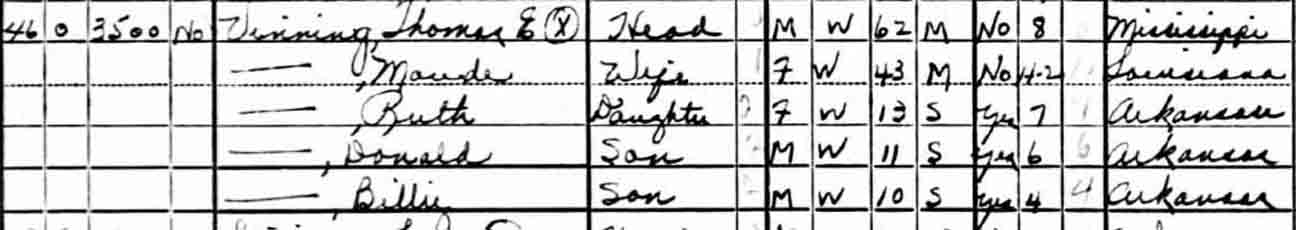 46 O 3500 No Vinning, Thomas E (X) Head M W 62 M No 8 Mississippi
—— , Maude Wife F W 43 M No H-2 Louisiana
—— , Ruth Daughter F W 13 S Yes 7 Arkansas
—— , Donald Son M W 11 S Yes 6 6 Arkansas
—— , Billie Son M W 10 S Yes 4 4 Arkansas